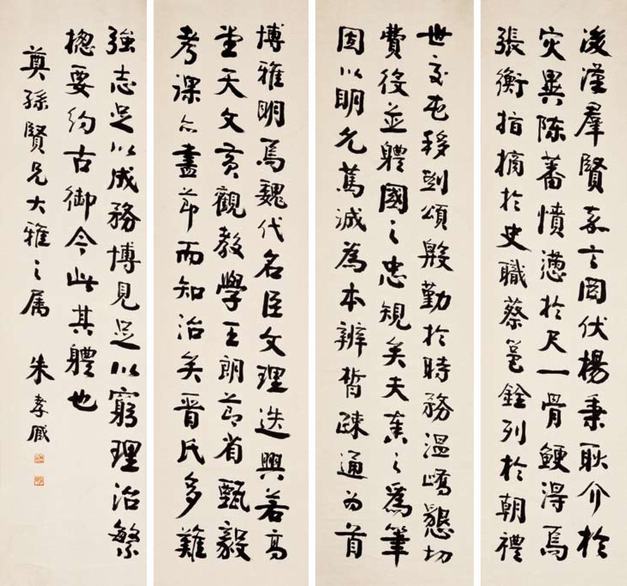 後漢羣賢嘉言罔伏楊秉耿介於
災異陳蕃憤懣於尺一骨鯁得焉
張衡指摘於史職蔡邕銓列於朝禮
世交屯移劉頌殷勤於時務溫嶠懇切
費役並體國之忠規矣夫奏之為筆
固以明允篤誠為本辨晳疎通為首
博雅明焉魏代名臣文理迭興若高
堂天文黃觀教學王朗節省甄毅
考課亦盡節而知治矣晉氏多難
強志足以成務博見足以窮理治繁
摠要約古御今此其體也
奠孫賢兄大雅之属 朱孝臧